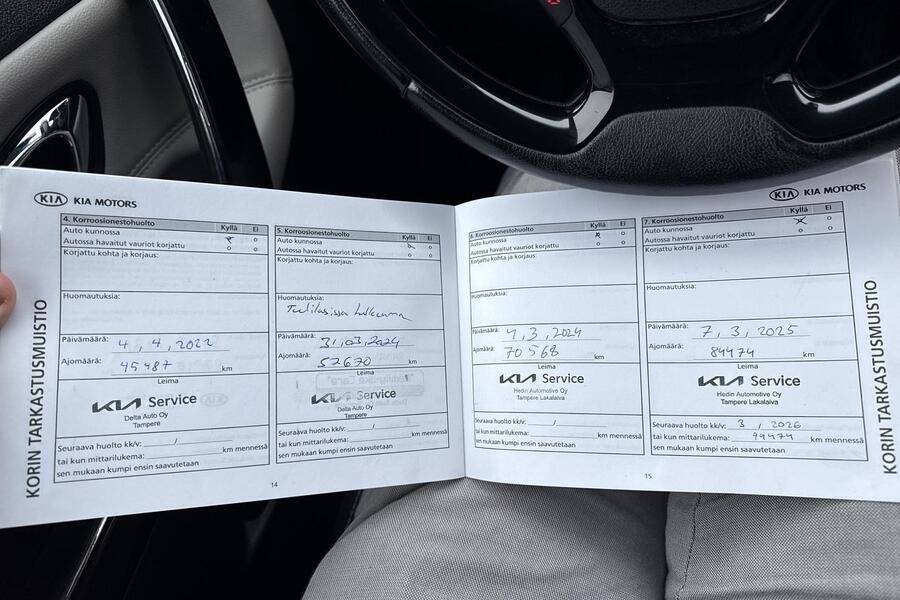 KIA KIA MOTORS
KORIN TARKASTUSMUISTIO
4. Korroosionestohuolto Kyllä Ei
Auto kunnossa x o
Autossa havaitut vauriot korjattu o o
Korjattu kohta ja korjaus:
Huomautuksia:
Päivämäärä: 4, 4, 2022
Ajomäärä: 45487 km
Leima
KIA Service
Delta Auto Oy
Tampere
Seuraava huolto kk/v: /
tai kun mittarilukema: km mennessä
sen mukaan kumpi ensin saavutetaan
5. Korroosionestohuolto Kyllä Ei
Auto kunnossa o
Autossa havaitut vauriot korjattu o o
Korjattu kohta ja korjaus:
Huomautuksia:
Tuulilasissa halkeama
Päivämäärä: 31,03,2024
Ajomäärä: 52670 km
Leima
KIA Service
Delta Auto Oy
Tampere
Seuraava huolto kk/v: /
tai kun mittarilukema: km mennessä
sen mukaan kumpi ensin saavutetaan
14
KIA KIA MOTORS
KORIN TARKASTUSMUISTIO
6. Korroosionestohuolto Kyllä Ei
Auto kunnossa x o
Autossa havaitut vauriot korjattu o o
Korjattu kohta ja korjaus:
Huomautuksia:
Päivämäärä: 1,3,2024
Ajomäärä: 70568 km
Leima
KIA Service
Hedin Automotive Oy
Tampere Lakalaiva
Seuraava huolto kk/v: /
tai kun mittarilukema: km mennessä
sen mukaan kumpi ensin saavutetaan
7. Korroosionestohuolto Kyllä Ei
Auto kunnossa x o
Autossa havaitut vauriot korjattu o o
Korjattu kohta ja korjaus:
Huomautuksia:
Päivämäärä: 7, 3, 2025
Ajomäärä: 84474 km
Leima
KIA Service
Hedin Automotive Oy
Tampere Lakalaiva
Seuraava huolto kk/v: 3 , 2026
tai kun mittarilukema: 99474 km mennessä
sen mukaan kumpi ensin saavutetaan
15